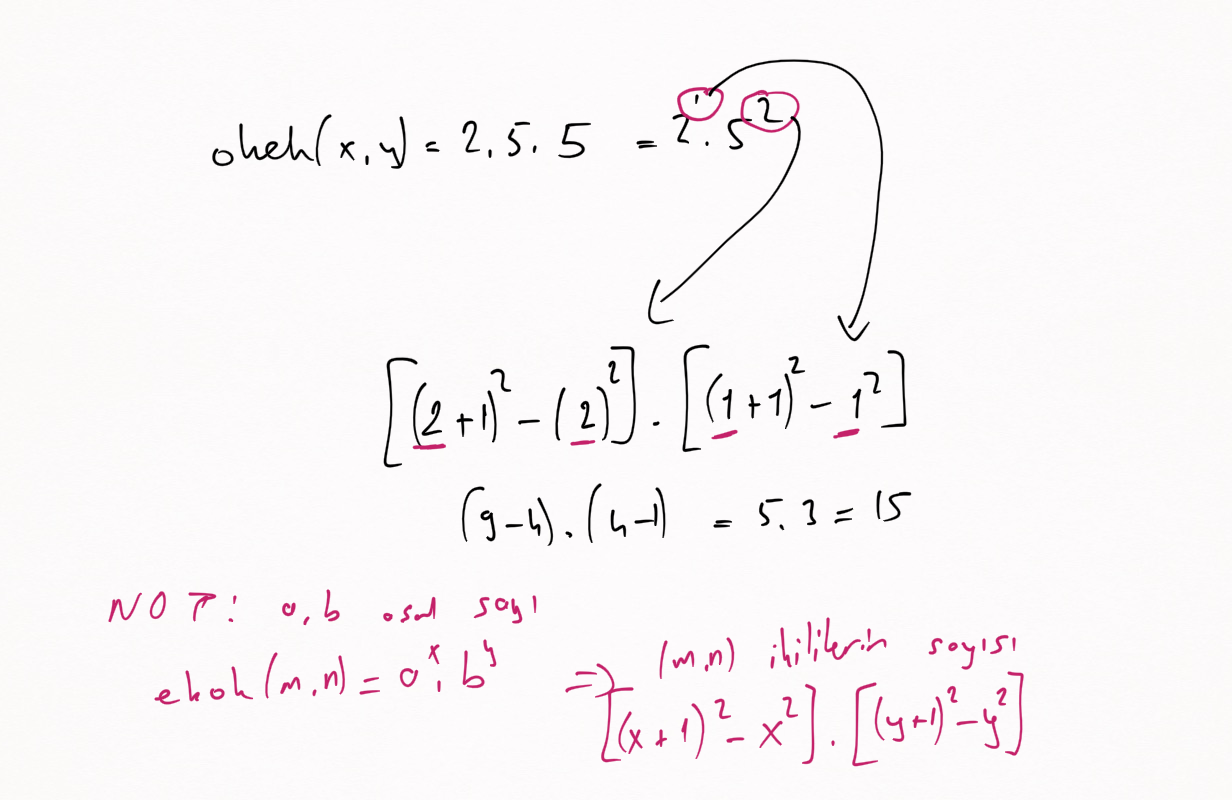 okek(x,y) = 2.5.5 = 2¹.5²
[(2+1)² - (2)²].[(1+1)² - 1²]
(9-4).(4-1) = 5.3 = 15
NOT: a,b asal sayı
ekok(m,n) = aˣ.bʸ => (m,n) ikililerin sayısı
[(x+1)² - x²].[(y+1)² - y²]